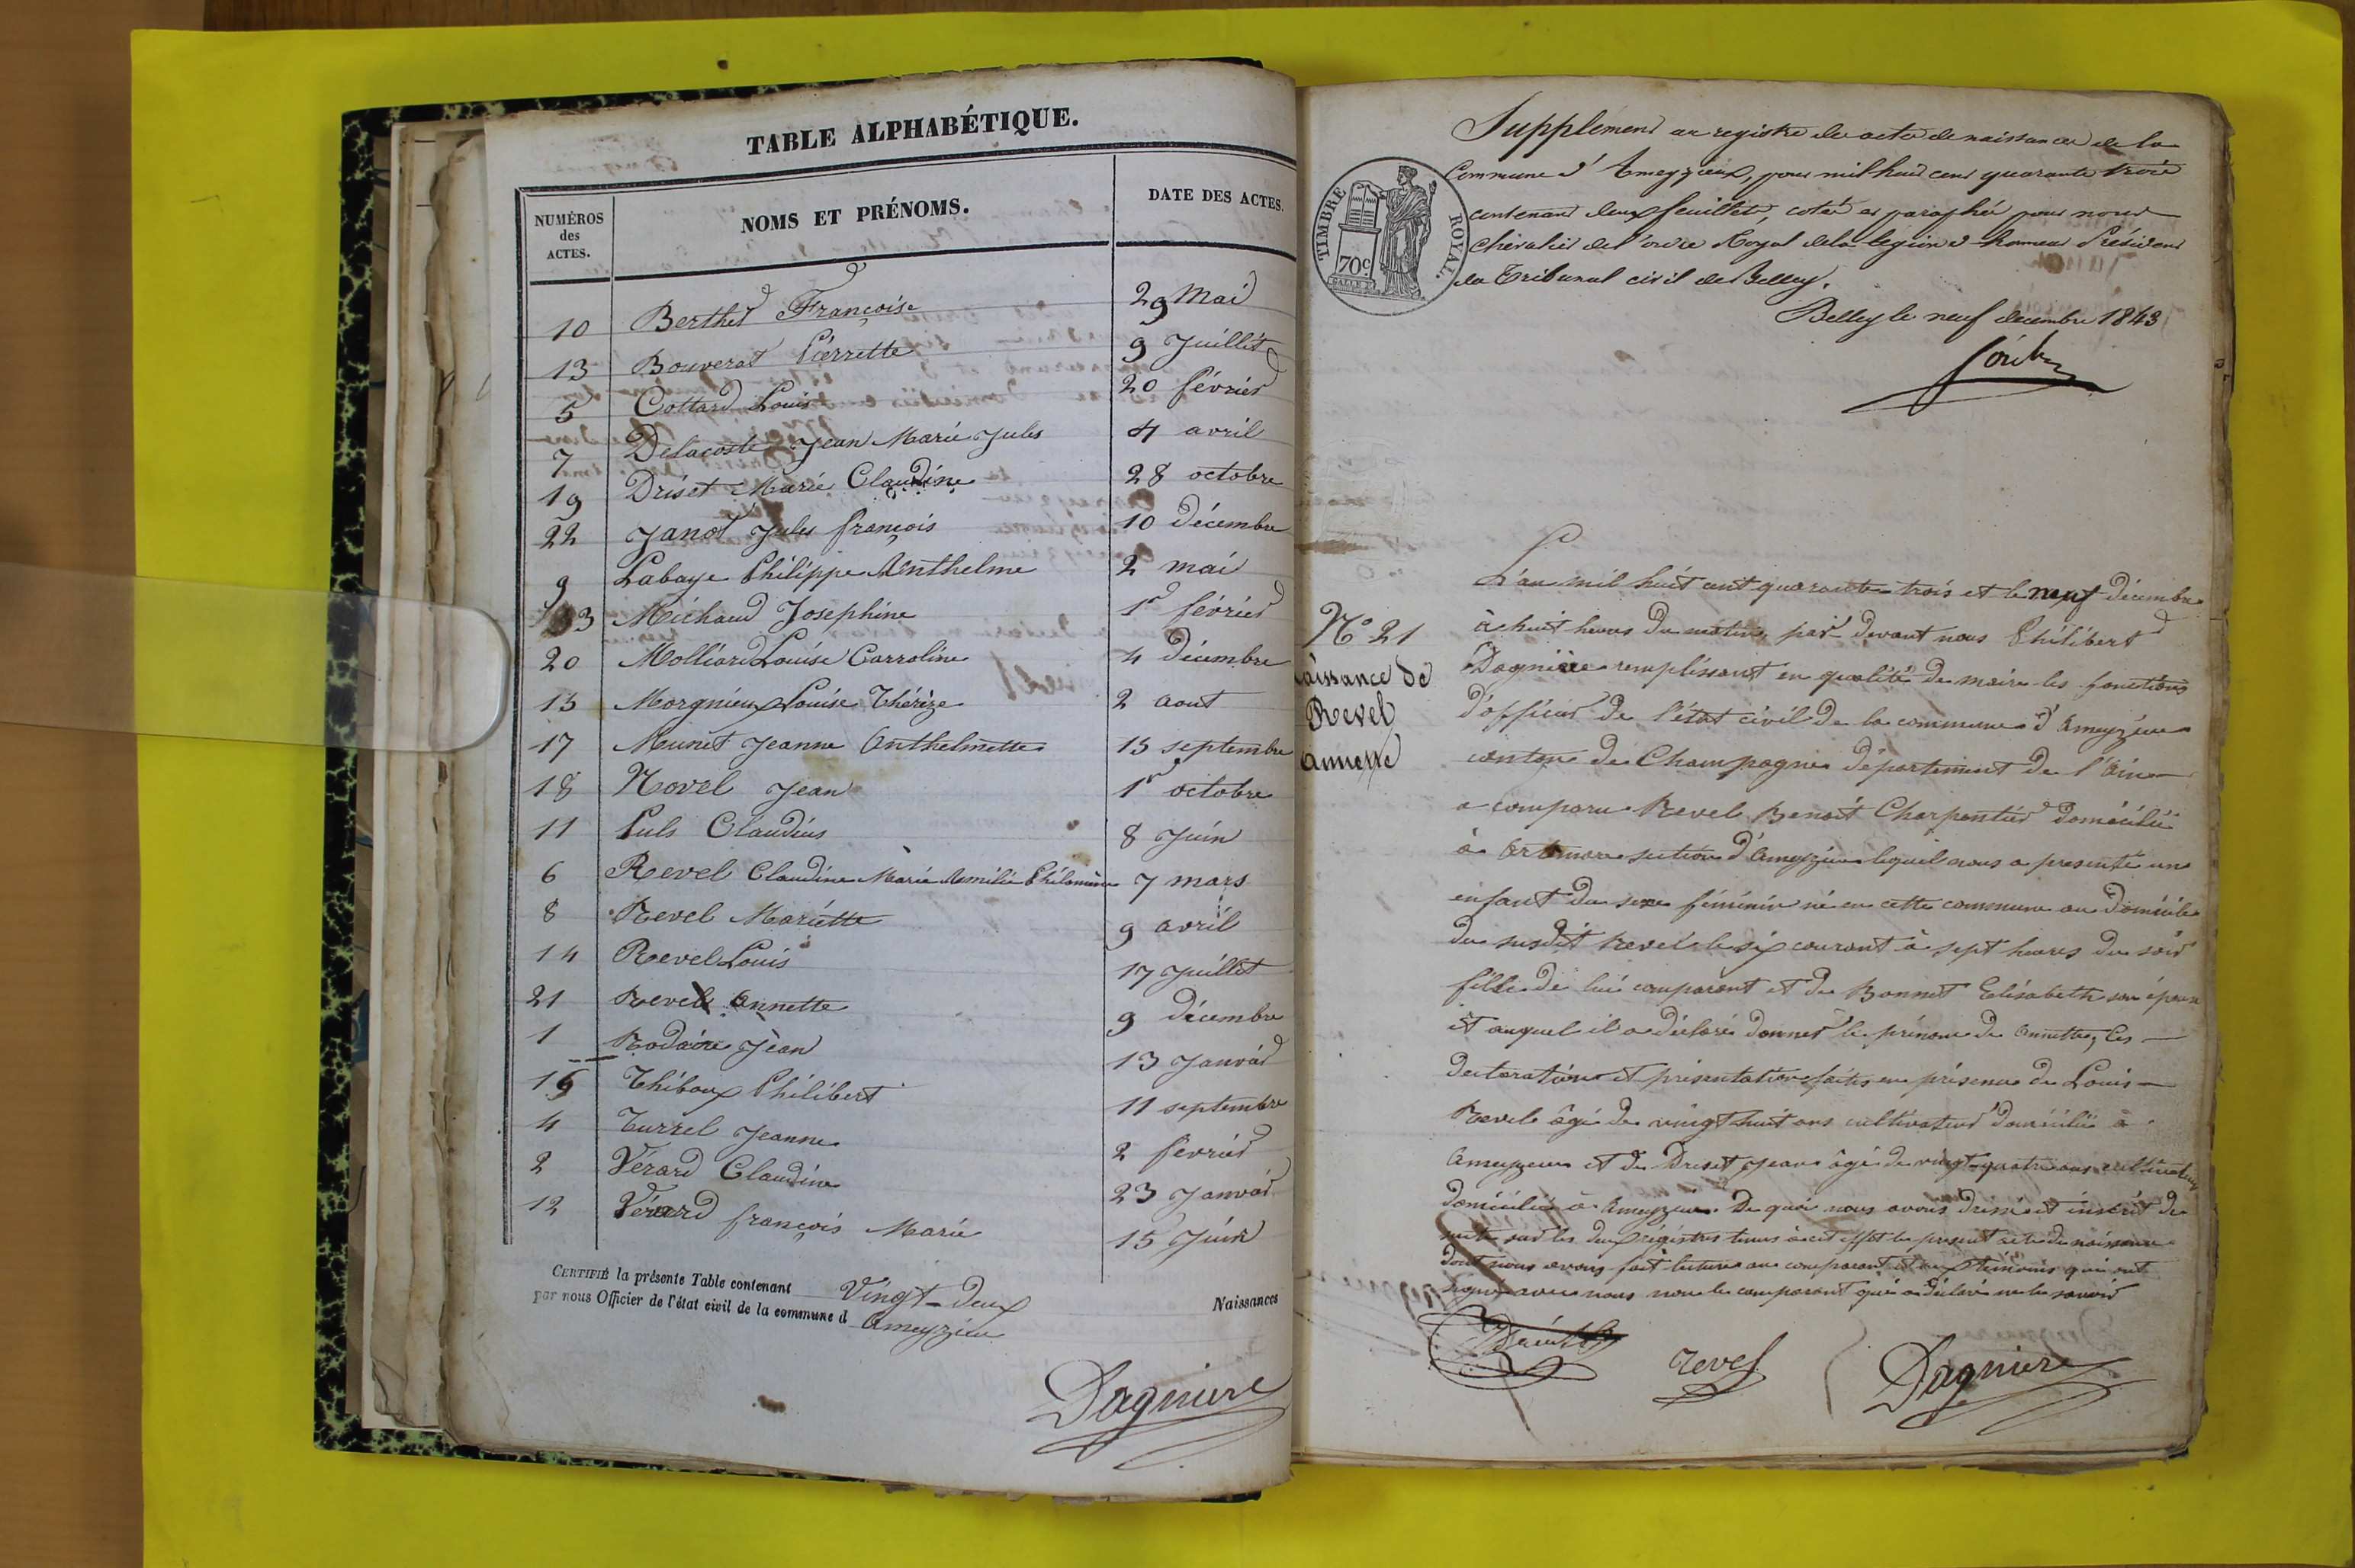 TABLE ALPHABÉTIQUE.
NUMÉROS des ACTES. NOMS ET PRÉNOMS. DATE DES ACTES.
10 Berthet Françoise 29 Mai
13 Bouverat Pierrette 9 Juillet
5 Cottard Louis 20 février
7 Delacoste Jean Marie Jules 4 avril
19 Driset Marie Claudine 28 octobre
22 Janot Jules françois 10 décembre
9 Labaye Philippe Anthelme 2 mai
3 Michaud Josephine 1r février
20 Molliard Louise Carroline 4 décembre
15 Morgnieux Louise Thérèze 2 aout
17 Meunet Jeanne Anthelmette 15 septembre
18 Novel Jean 1r octobre
11 Puls Claudius 8 Juin
6 Revel Claudine Marie Amilie Philomène 7 mars
8 Revel Mariette 9 avril
14 Revel Louis 17 Juillet
21 Revel Annette 9 décembre
1 Rodaire Jean 13 Janvier
16 Thiboux Philibert 11 septembre
4 Turrel Jeanne 2 février
2 Vérard Claudine 23 Janvier
12 Vérard françois Marie 15 Juin
CERTIFIÉ la présente Table contenant Vingt-deux Naissances
par nous Officier de l'état civil de la commune d Ameyzieu
Dagniere
TIMBRE ROYAL.
70c
Supplément au registre des actes de naissances de la
Commune d'Ameyzieux, pour mil huit cent quarante trois
contenant deux feuillets, cotés et paraphés par nous
Chevalier de l'ordre Royal de la légion d'honneur Président
du Tribunal civil de Belley.
Belley le neuf décembre 1843
N° 21
naissance de
Revel
Annette
L'an mil huit cent quarante trois et le neuf décembre
à huit heures du matin, par devant nous Philibert
Dagniere remplissant en qualité de maire les fonctions
d'officier de l'état civil de la commune d'Ameyzieu
canton de Champagne département de l'Ain
a comparu Revel Benoit Charpentier domicilié
à Artemare section d'Ameyzieu lequel nous a presenté un
enfant du sexe féminin né en cette commune au domicile
du susdit Revel le six courant à sept heures du soir
fille de lui comparant et de Bonnet Elisabeth son épouse
et auquel il a déclaré donner le prénom de Annette, les
declaration et présentation faites en présence de Louis
Revel âgé de vingt huit ans cultivateur domicilié à
Ameyzieu et de Driset Jean âgé de vingt-quatre ans cultivateur
domicilié à Ameyzieu. De quoi nous avons dressé et inscrit de
suite sur les deux régistres tenus à cet effet le present acte de naissance
dont nous avons fait lecture au comparant et aux témoins qui ont
signé avec nous non le comparant qui a déclaré ne le savoir
revel
Dagniere